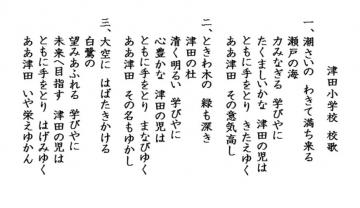 津田小学校 校歌
一、潮さいの わきて満ち来る
瀬戸の海
力みなぎる 学びやに
たくましいかな 津田の児は
ともに手をとり きたえゆく
ああ津田 その意気高し
二、ときわ木の 緑も深き
津田の杜
清く明るい 学びやに
心豊かな 津田の児は
ともに手をとり まなびゆく
ああ津田 その名もゆかし
三、大空に はばたきかける
白鷺の
望みあふれる 学びやに
未来へ目指す 津田の児は
ともに手をとり はげみゆく
ああ津田 いや栄えゆかん